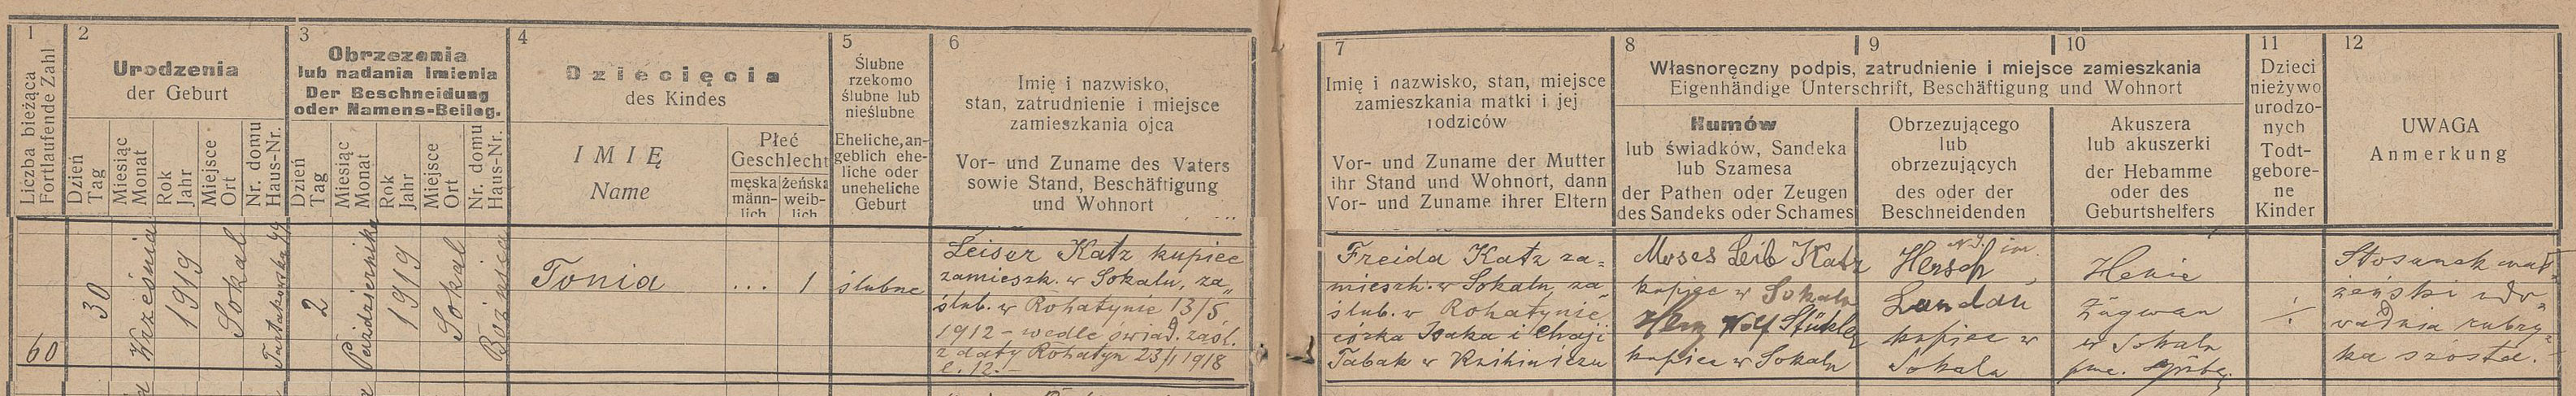 1
Liczba bieżąca
Fortlaufende Zahl
2
Urodzenia
der Geburt
Dzień
Tag
Miesiąc
Monat
Rok
Jahr
Miejsce
Ort
Nr. domu
Haus-Nr.
3
Obrzezania
lub nadania Imienia
Der Beschneidung
oder Namens-Beileg.
Dzień
Tag
Miesiąc
Monat
Rok
Jahr
Miejsce
Ort
Nr. domu
Haus-Nr.
4
Dziecięcia
des Kindes
IMIĘ
Name
Płeć
Geschlecht
męska
männ-
lich
żeńska
weib-
lich
5
Ślubne
rzekomo
ślubne lub
nieślubne
Eheliche, an-
geblich ehe-
liche oder
uneheliche
Geburt
6
Imię i nazwisko,
stan, zatrudnienie i miejsce
zamieszkania ojca
Vor- und Zuname des Vaters
sowie Stand, Beschäftigung
und Wohnort
7
Imię i nazwisko, stan, miejsce
zamieszkania matki i jej
rodziców
Vor- und Zuname der Mutter
ihr Stand und Wohnort, dann
Vor- und Zuname ihrer Eltern
8
9
10
Własnoręczny podpis, zatrudnienie i miejsce zamieszkania
Eigenhändige Unterschrift, Beschäftigung und Wohnort
Kumów
lub świadków, Sandeka
lub Szamesa
der Pathen oder Zeugen
des Sandeks oder Schames
Obrzezującego
lub
obrzezujących
des oder der
Beschneidenden
Akuszera
lub akuszerki
der Hebamme
oder des
Geburtshelfers
11
Dzieci
nieżywo
urodzo-
nych
Todt-
gebore-
ne
Kinder
12
UWAGA
Anmerkung
60
30
Września
1919
Sokal
Tartakowska
2
Października
1919
Sokal
Bożnica
Tonia
...
1
ślubne
Leiser Katz kupiec
zamieszk. w Sokalu, za„
ślub. w Rohatynie 13/5
1912 – wedle świad. zaśl.
z daty Rohatyn 23/1 1918
l. 12.–
Freida Katz za=
mieszk. w Sokalu, za
ślub. w Rohatynie
córka Isaka i Chaji
Tabak w Knihiniczu
Moses Leib Katz
kupiec w Sokalu
Wolf
kupiec w Sokalu
Hersch
Landau
kupiec w
Sokalu
Henie
w Sokalu
÷
Stosunek mał„
żeński udo„
wadnia rubry„
ka szósta.